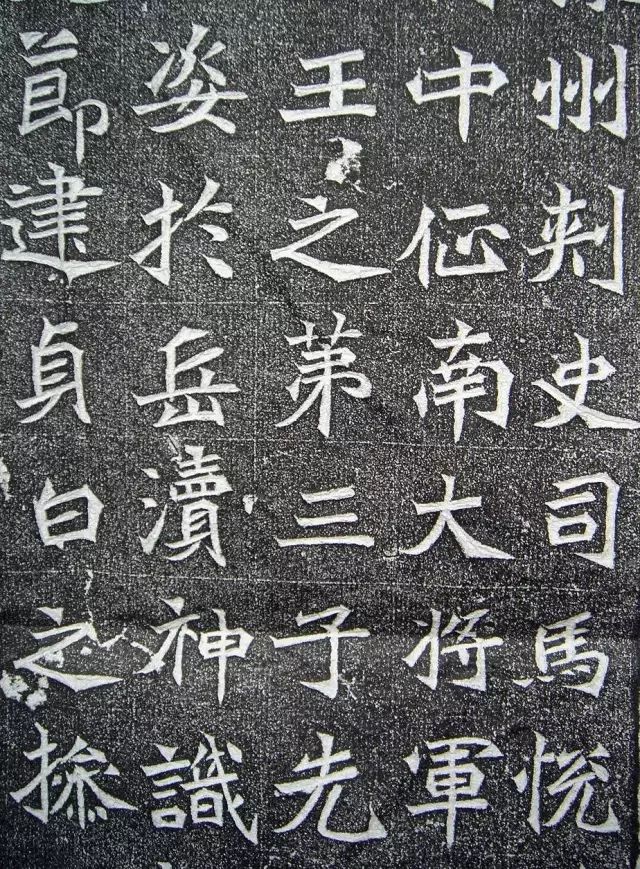 州刾史司馬悦
中征南大将軍
王之苐三子先
姿於岳瀆神識
莭建貞白之操